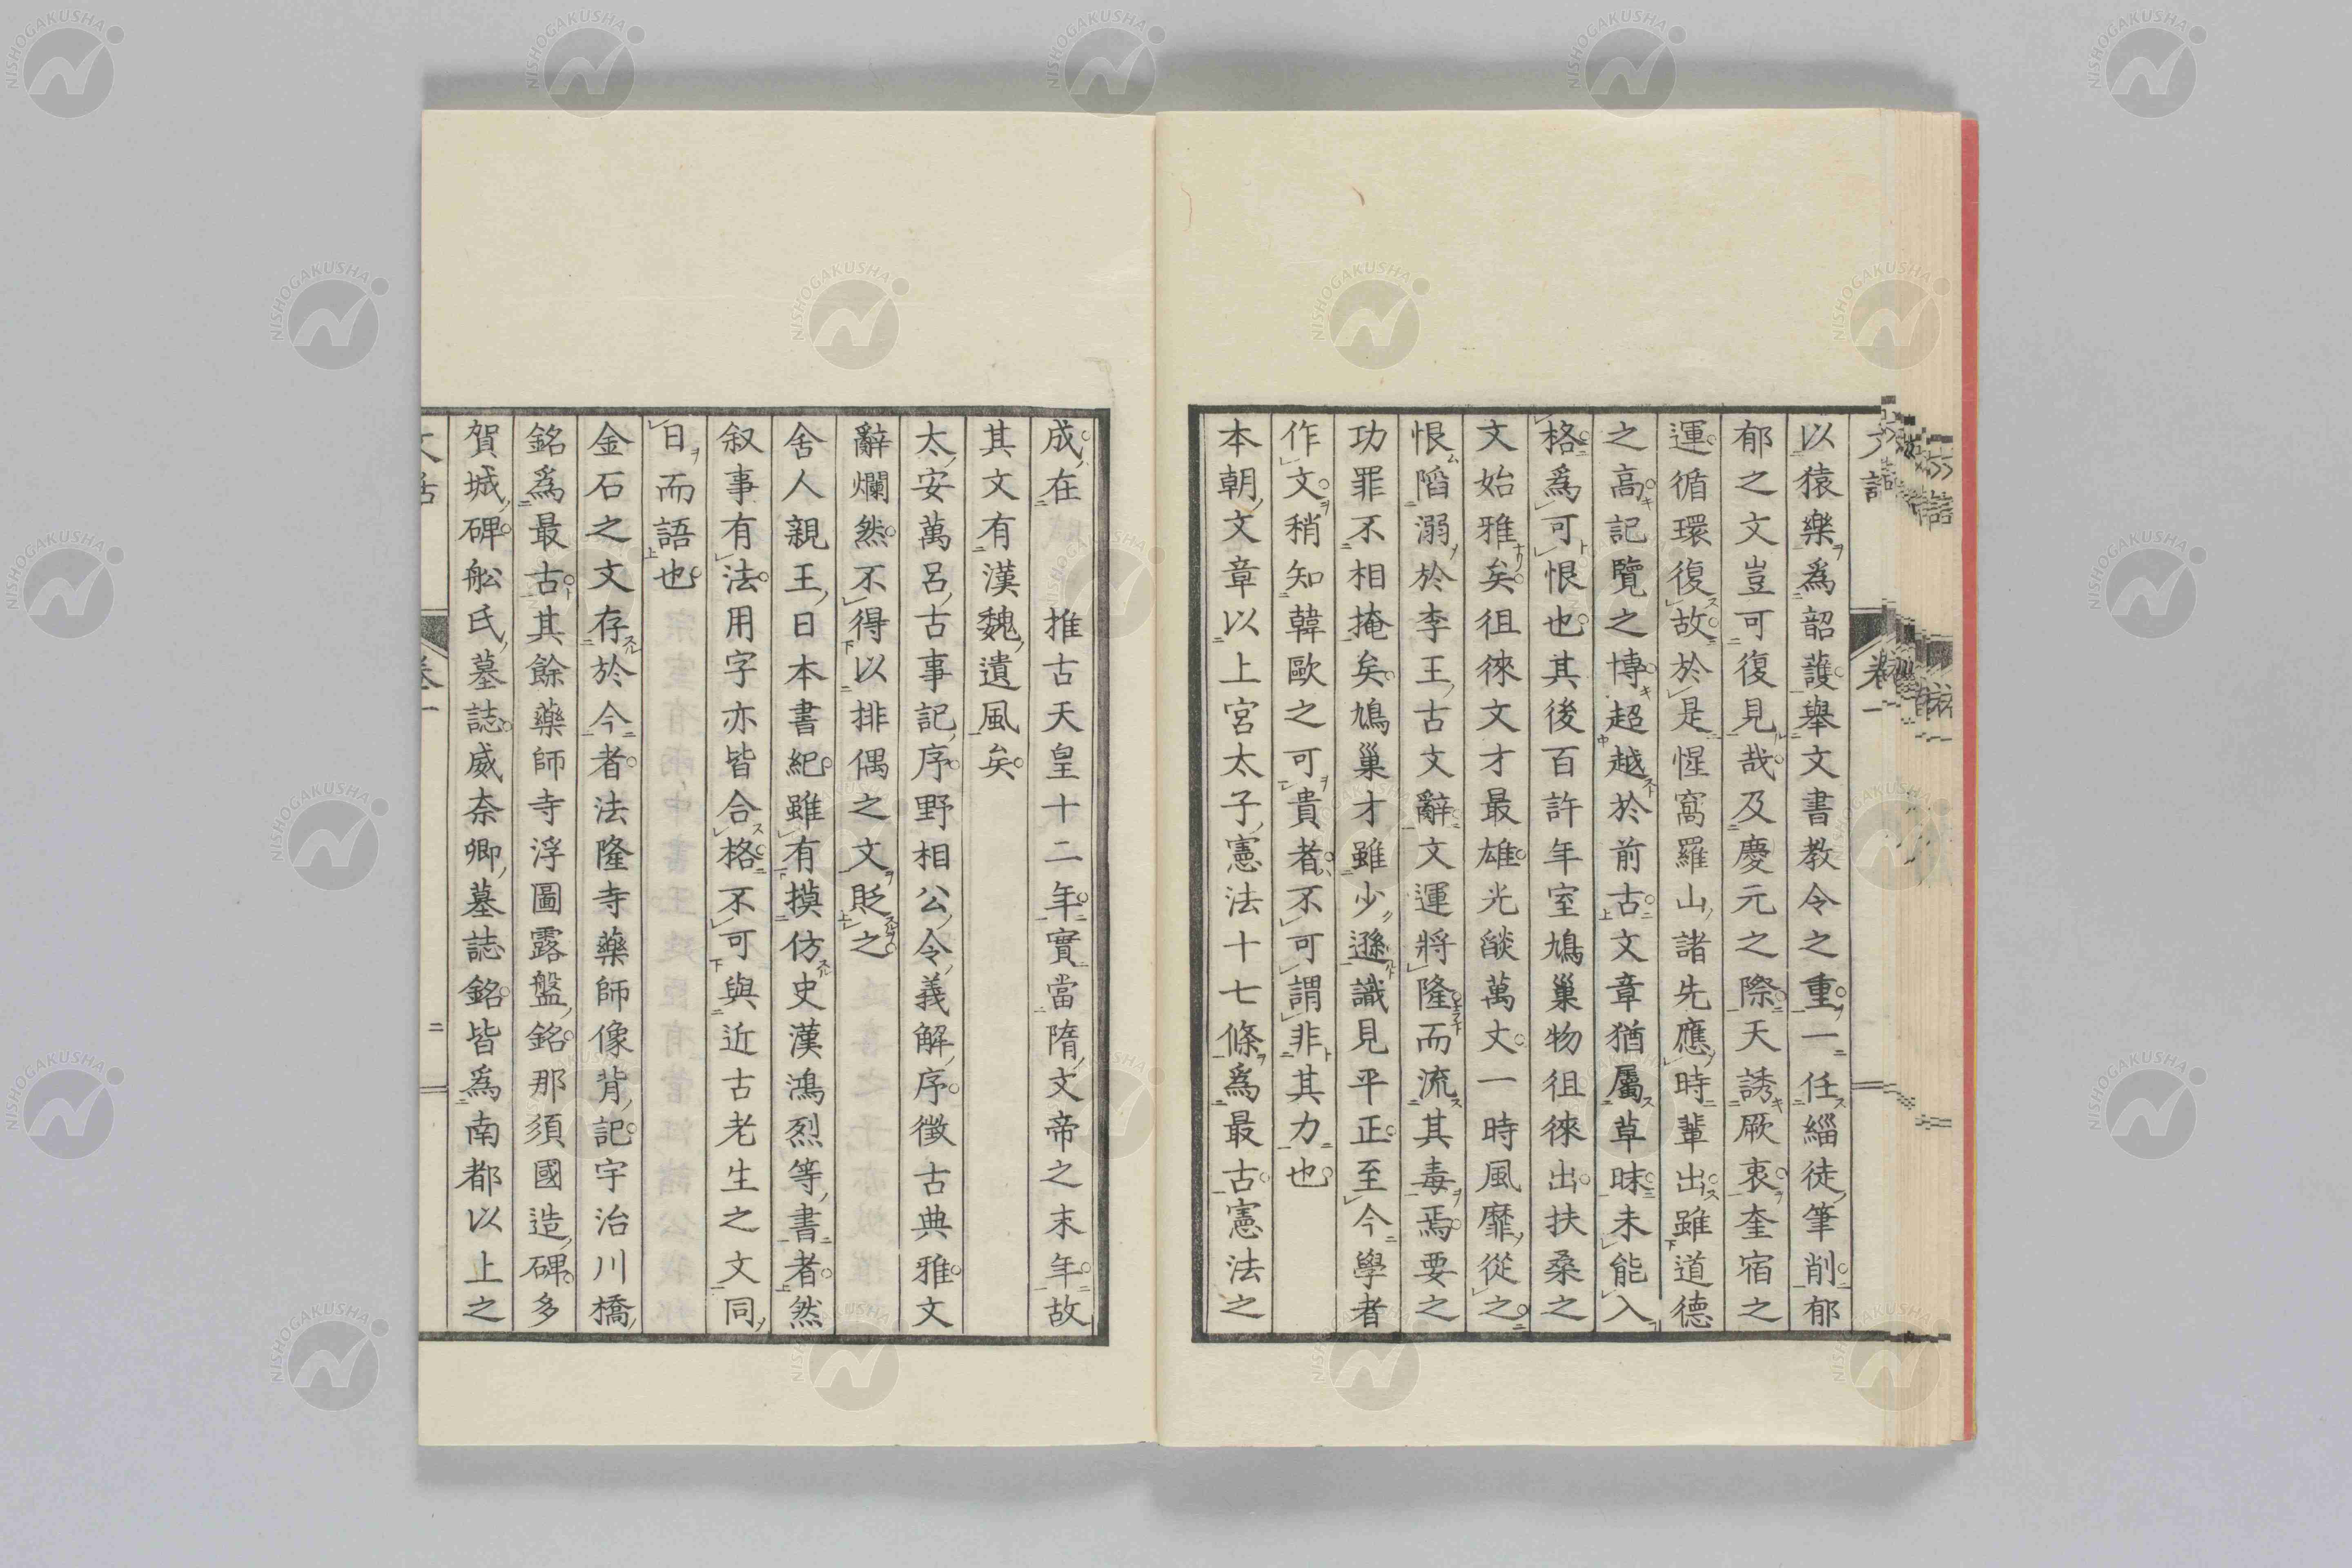 以猿樂爲韶護擧文書教令之重一任緇徒筆削郁
郁之文豈可復見哉及慶元之際天誘厥衷奎宿之
運循環復故於是惺窩羅山諸先應時輩出雖道德
之高記覽之博超越於前古文章猶屬草昧未能入
格爲可恨也其後百許年室鳩巢物徂徠出扶桑之
文始雅矣徂徠文才最雄光燄萬丈一時風靡從之
恨滔溺於李王古文辭文運將隆而流其毒焉要之
功罪不相掩矣鳩巢才雖少遜識見平正至今學者
作文稍知韓歐之可貴者不可謂非其力也
本朝文章以上宮太子憲法十七條爲最古憲法之
成在推古天皇十二年實當隋文帝之末年故
其文有漢魏遺風矣
太安萬呂古事記序野相公令義解序徵古典雅文
辭爛然不得以排偶之文貶之
舍人親王日本書紀雖有摸仿史漢鴻烈等書者然
叙事有法用字亦皆合格不可與近古老生之文同
日而語也
金石之文存於今者法隆寺藥師像背記宇治川橋
銘爲最古其餘藥師寺浮圖露盤銘那須國造碑多
賀城碑舩氏墓誌威奈卿墓誌銘皆爲南都以上之
卷一
二
NISHOGAKUSHA